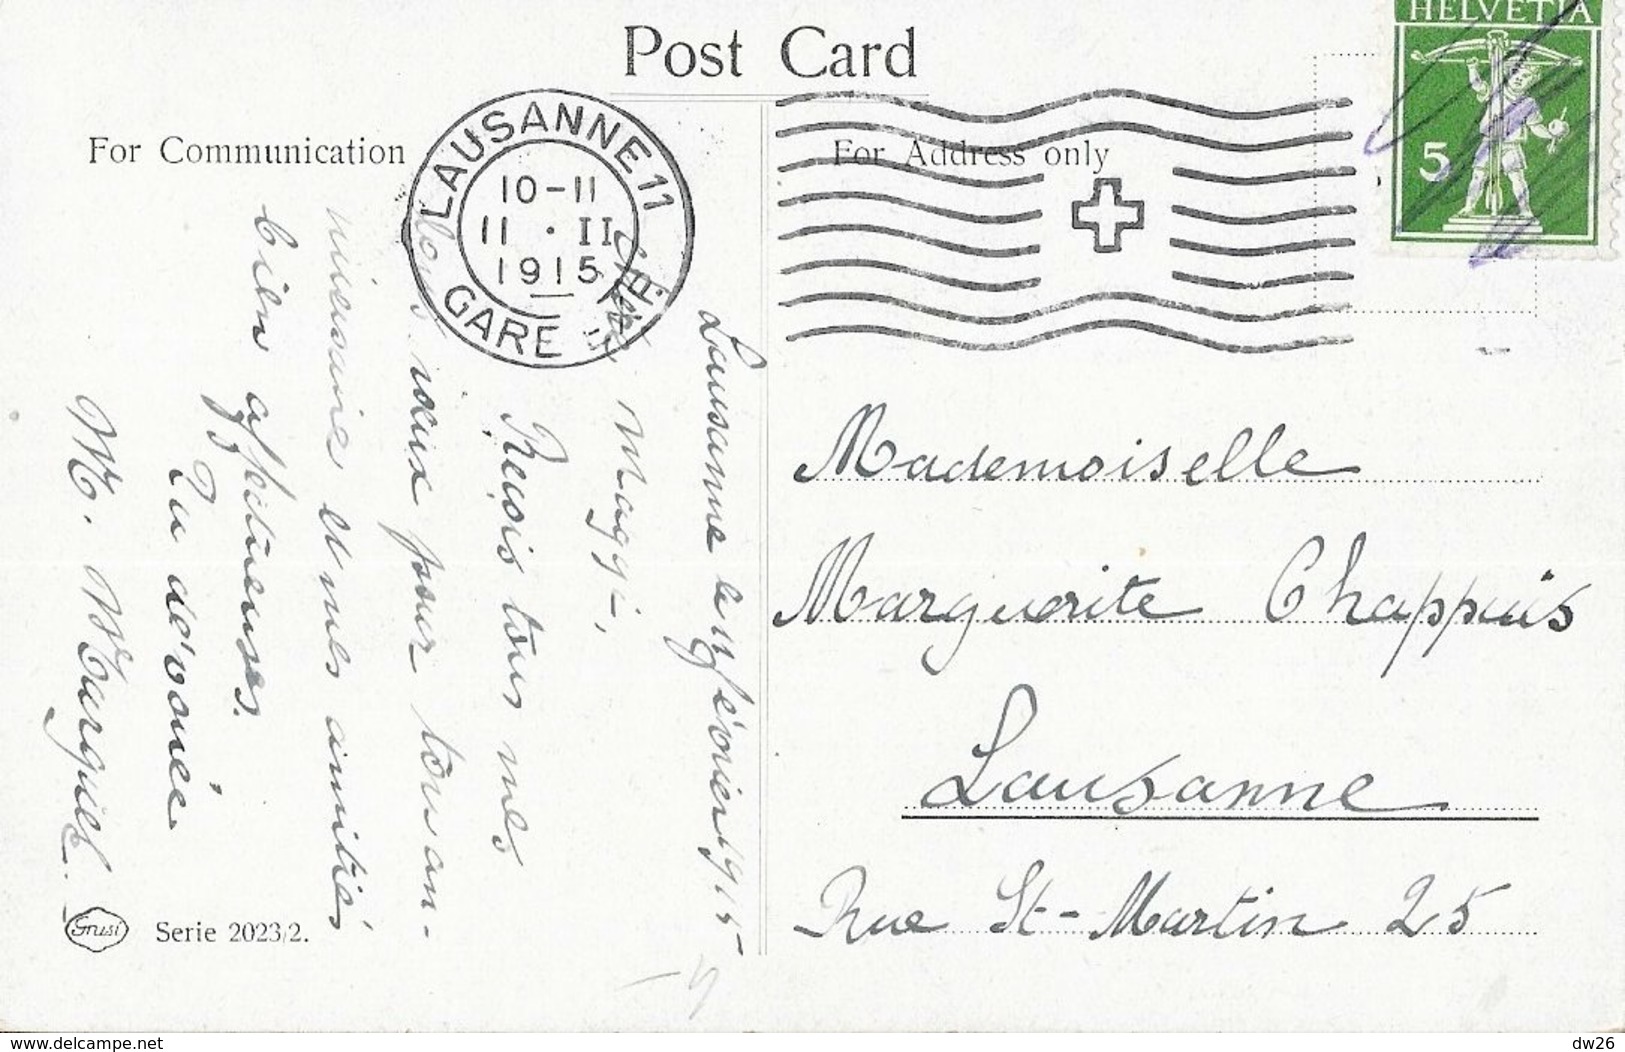 Post Card
HELVETIA
5
For Communication
For Address only
LAUSANNE 11
10-11
11 · II
1915
GARE EXP.
Lausanne le 11 février 1915
Maggi,
Reçois tous mes
bons vœux pour ton an-
niversaire et mes amitiés
bien affectueuses.
Ta dévouée
M.
Mademoiselle
Marguerite Chappuis
Lausanne
Rue St-Martin 25
Grusi
Serie 2023/2.
www.delcampe.net
dw26